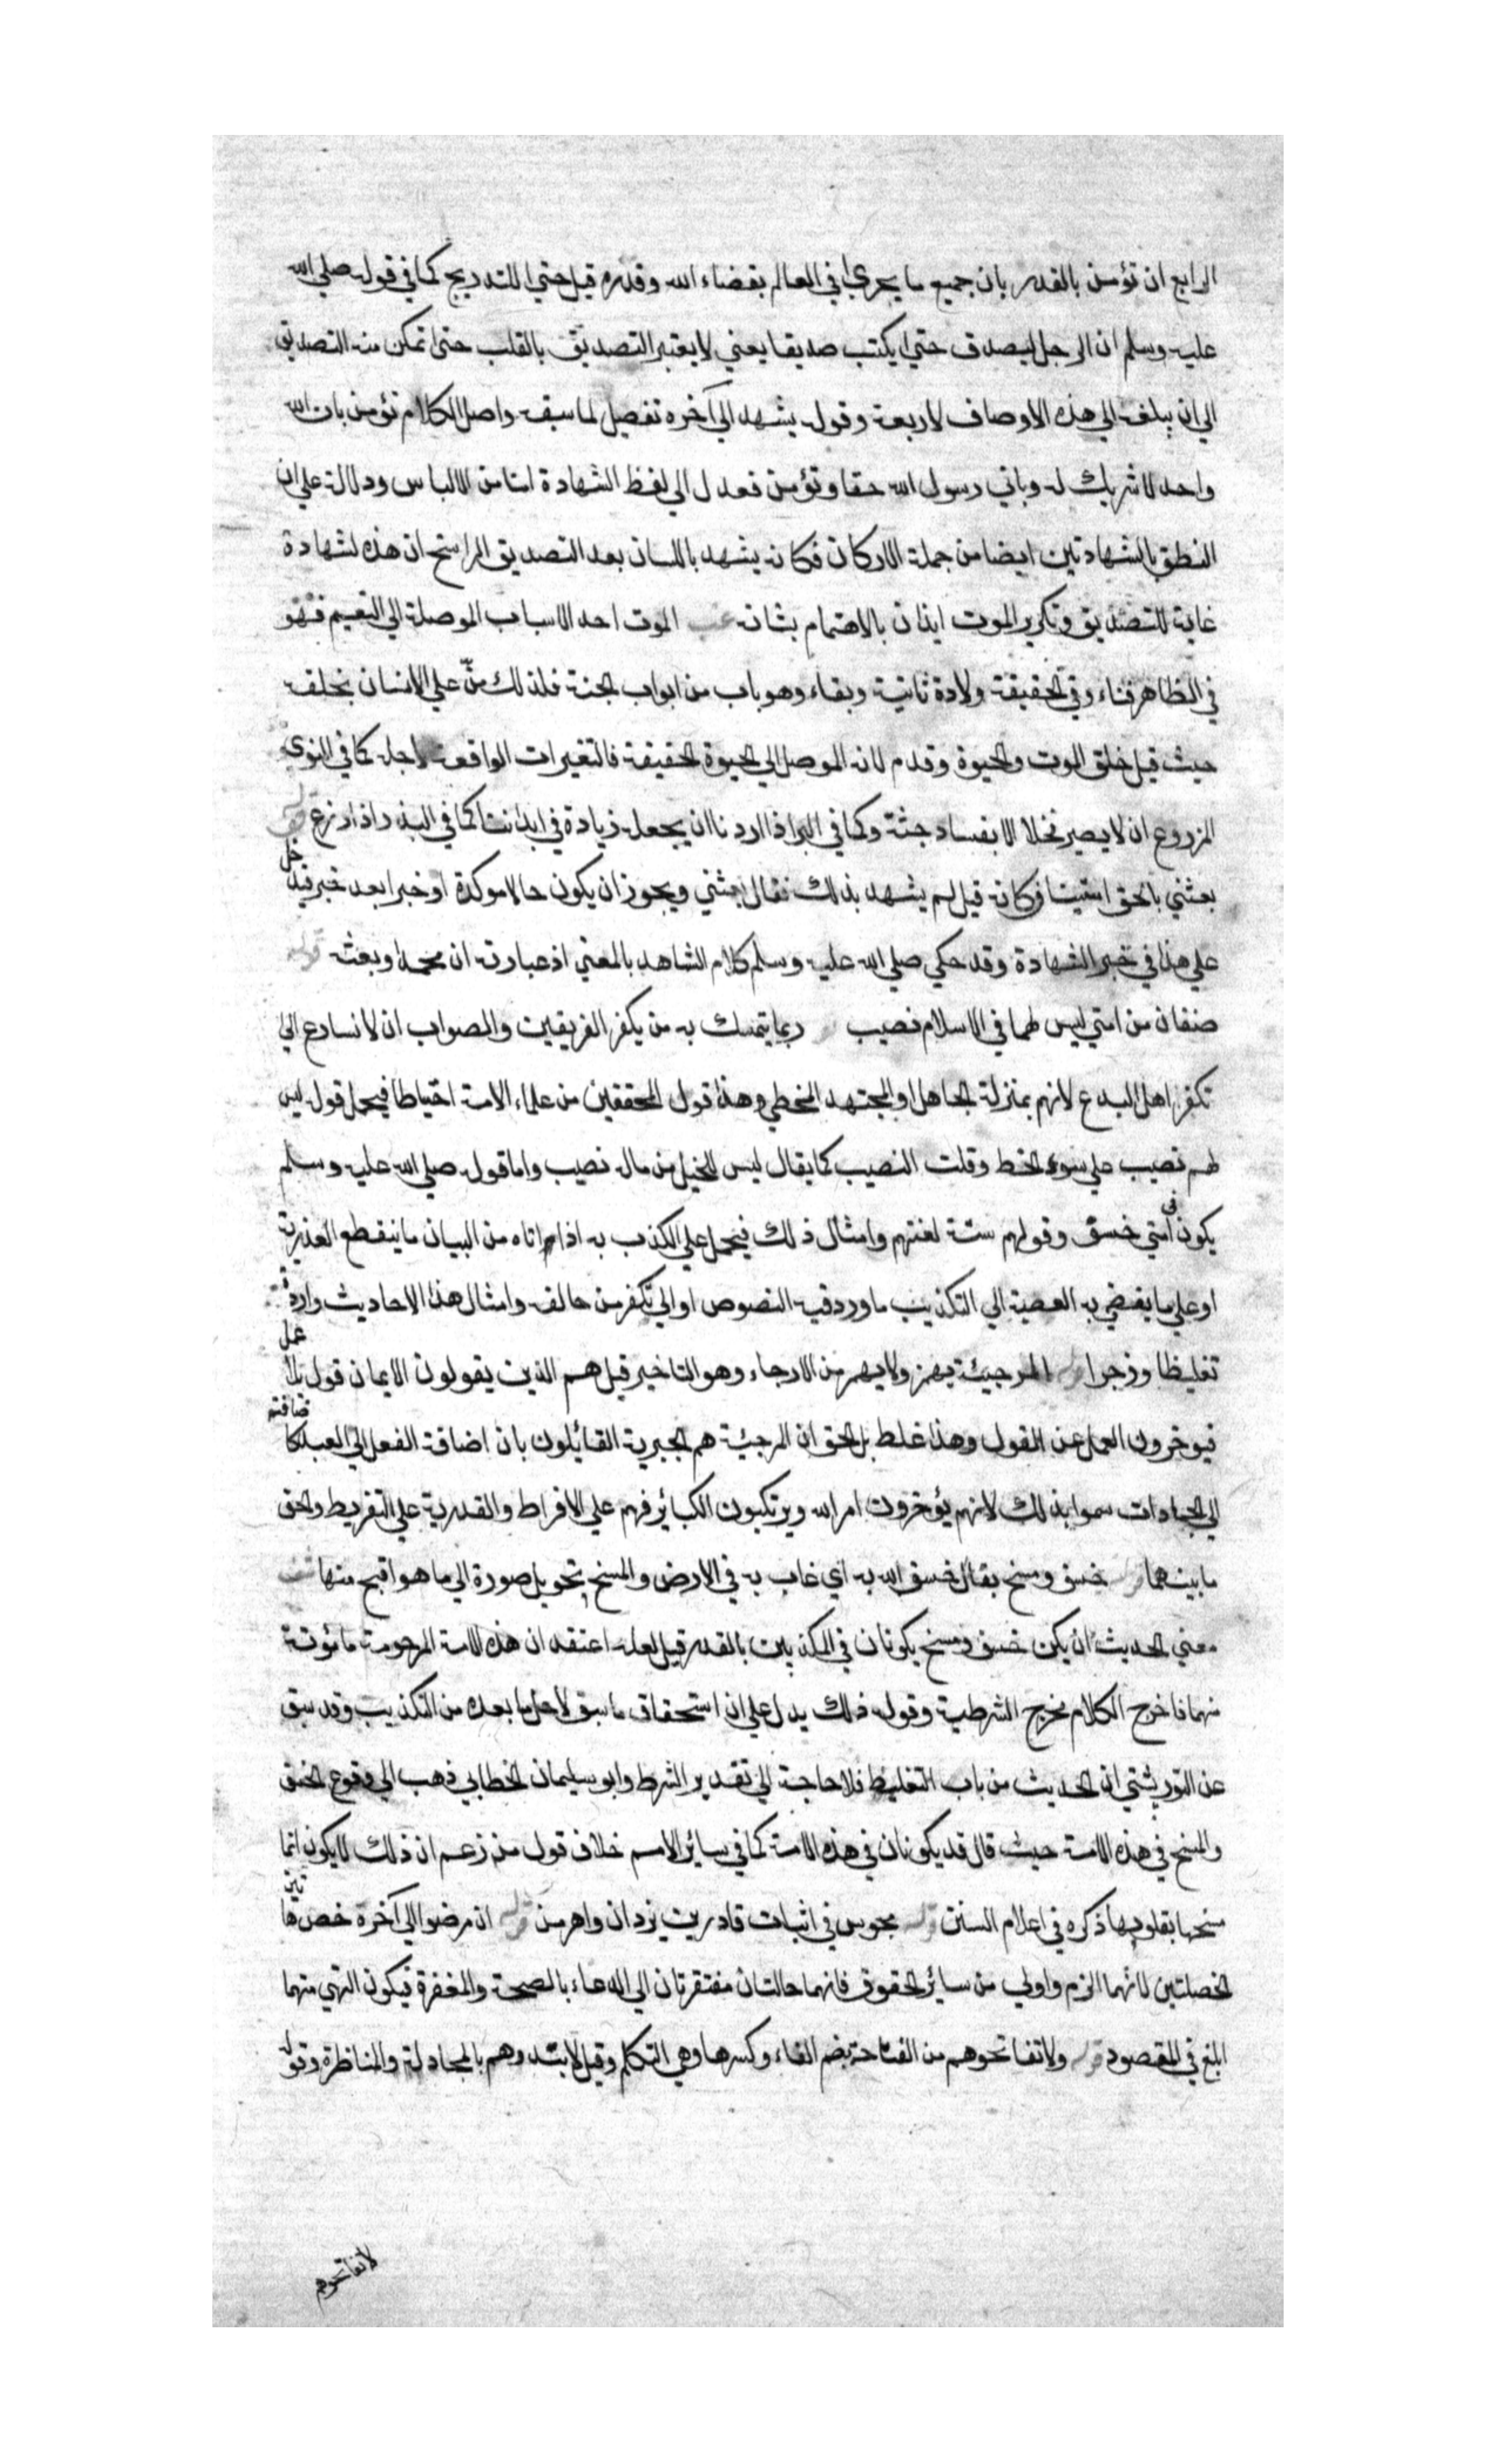 الرابع ان تؤمن بالقدر بان جميع ما يجري في العالم بقضاء الله وقدره قيل حتي للتدريج كما في قوله صلي الله
عليه وسلم ان الرجل ليصدق حتي يكتب صديقا يعني لا يعتبر التصديق بالقلب حتي تمكن منه التصديق
الي ان يبلغ الي هذه الاوصاف الاربعة وقوله يشهد الي آخره تفصيل لما سبقه واصل الكلام تؤمن بان الله
واحد لا شريك له وباني رسول الله حقا وتؤمن فعدل الي لفظ الشهادة امنا من الالباس ودلالة علي ان
النطق بالشهادتين ايضا من جملة الاركان فكانه يشهد باللسان بعد التصديق الراسخ ان هذه لشهادة
غاية للتصديق وتكرير الموت ايذان بالاهتمام بشانه الموت احد الاسباب الموصلة الي النعيم فهو
في الظاهر فناء وفي الحقيقة ولادة ثانية وبقاء وهو باب من ابواب الجنة فلذلك منّ علي الانسان بخلقه
حيث قيل خلق الموت والحيوة وقدم لانه الموصل الي الحيوة الحقيقة فالتغيرات الواقعة لاجله كما في النوي
المزروع ان لا يصير نخلا الا بفساد جثته وكما في البر اذا اردنا ان يجعله زيادة في ابداننا كما في البذر اذا زرع قوله
بعثني بالحق استينا فكانه قيل لم يشهد بذلك فقال بعثني ويجوز ان يكون حالا موكدة او خبرا بعد خبر فيدخل
علي هذا في خبر الشهادة وقد حكي صلي الله عليه وسلم كلام الشاهد بالمعني اذ عبارته ان محمدا وبعث قوله
صنفان من امتي ليس لهما في الاسلام نصيب ربما يتمسك به من يكفر الفريقين والصواب ان لا نسارع الي
تكفير اهل البدع لانهم بمنزلة الجاهل او المجتهد المخطي وهذا قول المحققين من علماء الامة احتياطا فيحمل قوله ليس
لهم نصيب علي سوء الحظ وقلت النصيب كما يقال ليس للبخيل من ماله نصيب واما قوله صلي الله عليه وسلم
يكون في امتي خسق وقولهم ستة لعنتهم وامثال ذلك فيحمل علي الكذب به اذا اتاه من البيان ما ينقطع العذر به
او علي ما يفضي به العصبية الي التكذيب ما ورد فيه النصوص او الي تكفير من خالفه وامثال هذا الاحاديث واردة
تغليظا وزجرا قوله المرجيئة يهمز ولا يهمز من الارجاء وهو التاخير قيل هم الذين يقولون الايمان قول بلا عمل
فيوخرون العمل عن القول وهذا غلط بل الحق ان المرجئية هم الجبرية القائلون بان اضافة الفعل الي العبد كاضافته
الي الجمادات سموا بذلك لانهم يؤخرون امر الله ويرتكبون الكبائر فهم علي الافراط والقدرية علي التفريط والحق
ما بينهما قوله خسق ومسخ يقال خسق الله به اي غاب به في الارض والمسخ تحويل صورة الي ما هو اقبح منها
معني الحديث ان يكن خسق ومسخ يكونان في المكذبين بالقدر قيل لعله اعتقد ان هذه الامة المرحومة مامونة
منهما فاخرج الكلام مخرج الشرطية وقوله ذلك يدل علي ان استحقاق ما سبق لاجل ما بعده من التكذيب وقد سبق
عن التوربشتي ان الحديث من باب التغليظ فلا حاجة الي تقدير الشرط وابو سليمان الخطابي ذهب الي وقوع الخسق
والمسخ في هذه الامة حيث قال قد يكونان في هذه الامة كما في سائر الامم خلاف قول من زعم ان ذلك لا يكون انما
مسخها بقلوبها ذكره في اعلام السنن قوله مجوس في اثبات قادرين يزدان واهرمن قوله ان مرضوا الي آخره خص هاتين
الخصلتين لانهما الزم واولي من سائر الحقوق فانهما حالتان مفتقرتان الي الدعاء بالصحة والمغفرة فيكون النهي منهما
ابلغ في المقصود قوله ولا تفاتحوهم من الفتاحة بضم الفاء وكسرها وهي التكلم وقيل لا تبتدوهم بالمجادلة والمناظرة وقوله
لا تفاتحوهم